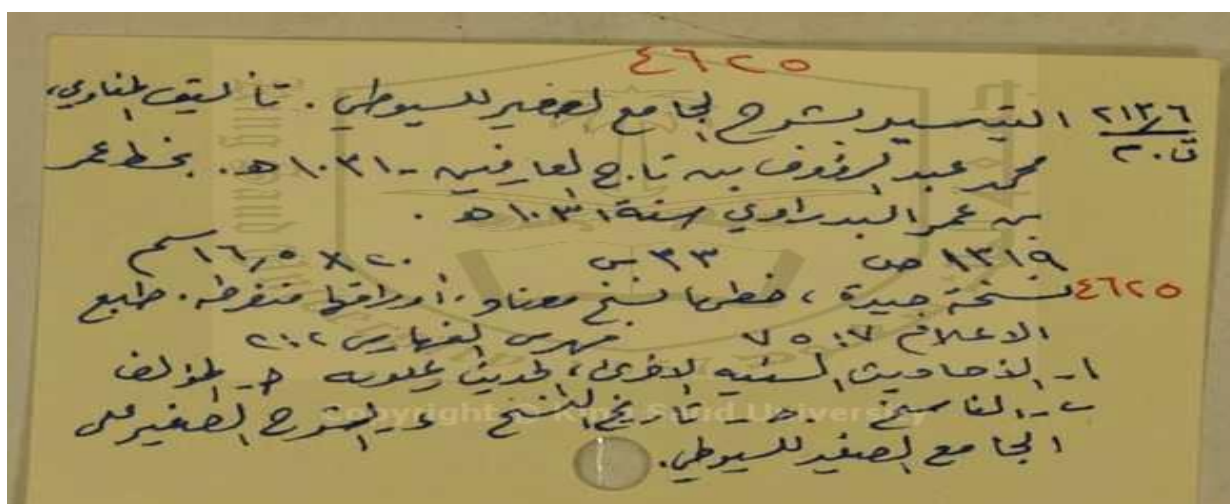 ٤٦٢٥
٢١٣٫٦ التيسير بشرح الجامع الصغير للسيوطي . تأليف المناوي،
ت ٢٠٠ محمد عبد الرؤوف بن تاج العارفين - ١٠٣١ هـ . بخط عمر
بن عمر البدراوي سنة ١٠٣١ هـ .
١٣١٩ ص ٣٣ س ٢٠ × ١٦٫٥ سم
٤٦٢٥ نسخة جيدة ، خطها نسخ معتاد ، أوراقها منفرطه . طبع
الاعلام ٧ : ٧٥ فهرس الفهارس ٢ : ٢
١- الأحاديث السنيه الاخرى ، الحديث وعلومه أ - المؤلف
ب - الناسخ ج - تاريخ النسخ د - الشرح الصغير على
الجامع الصغير للسيوطي .
Copyright © King Saud University